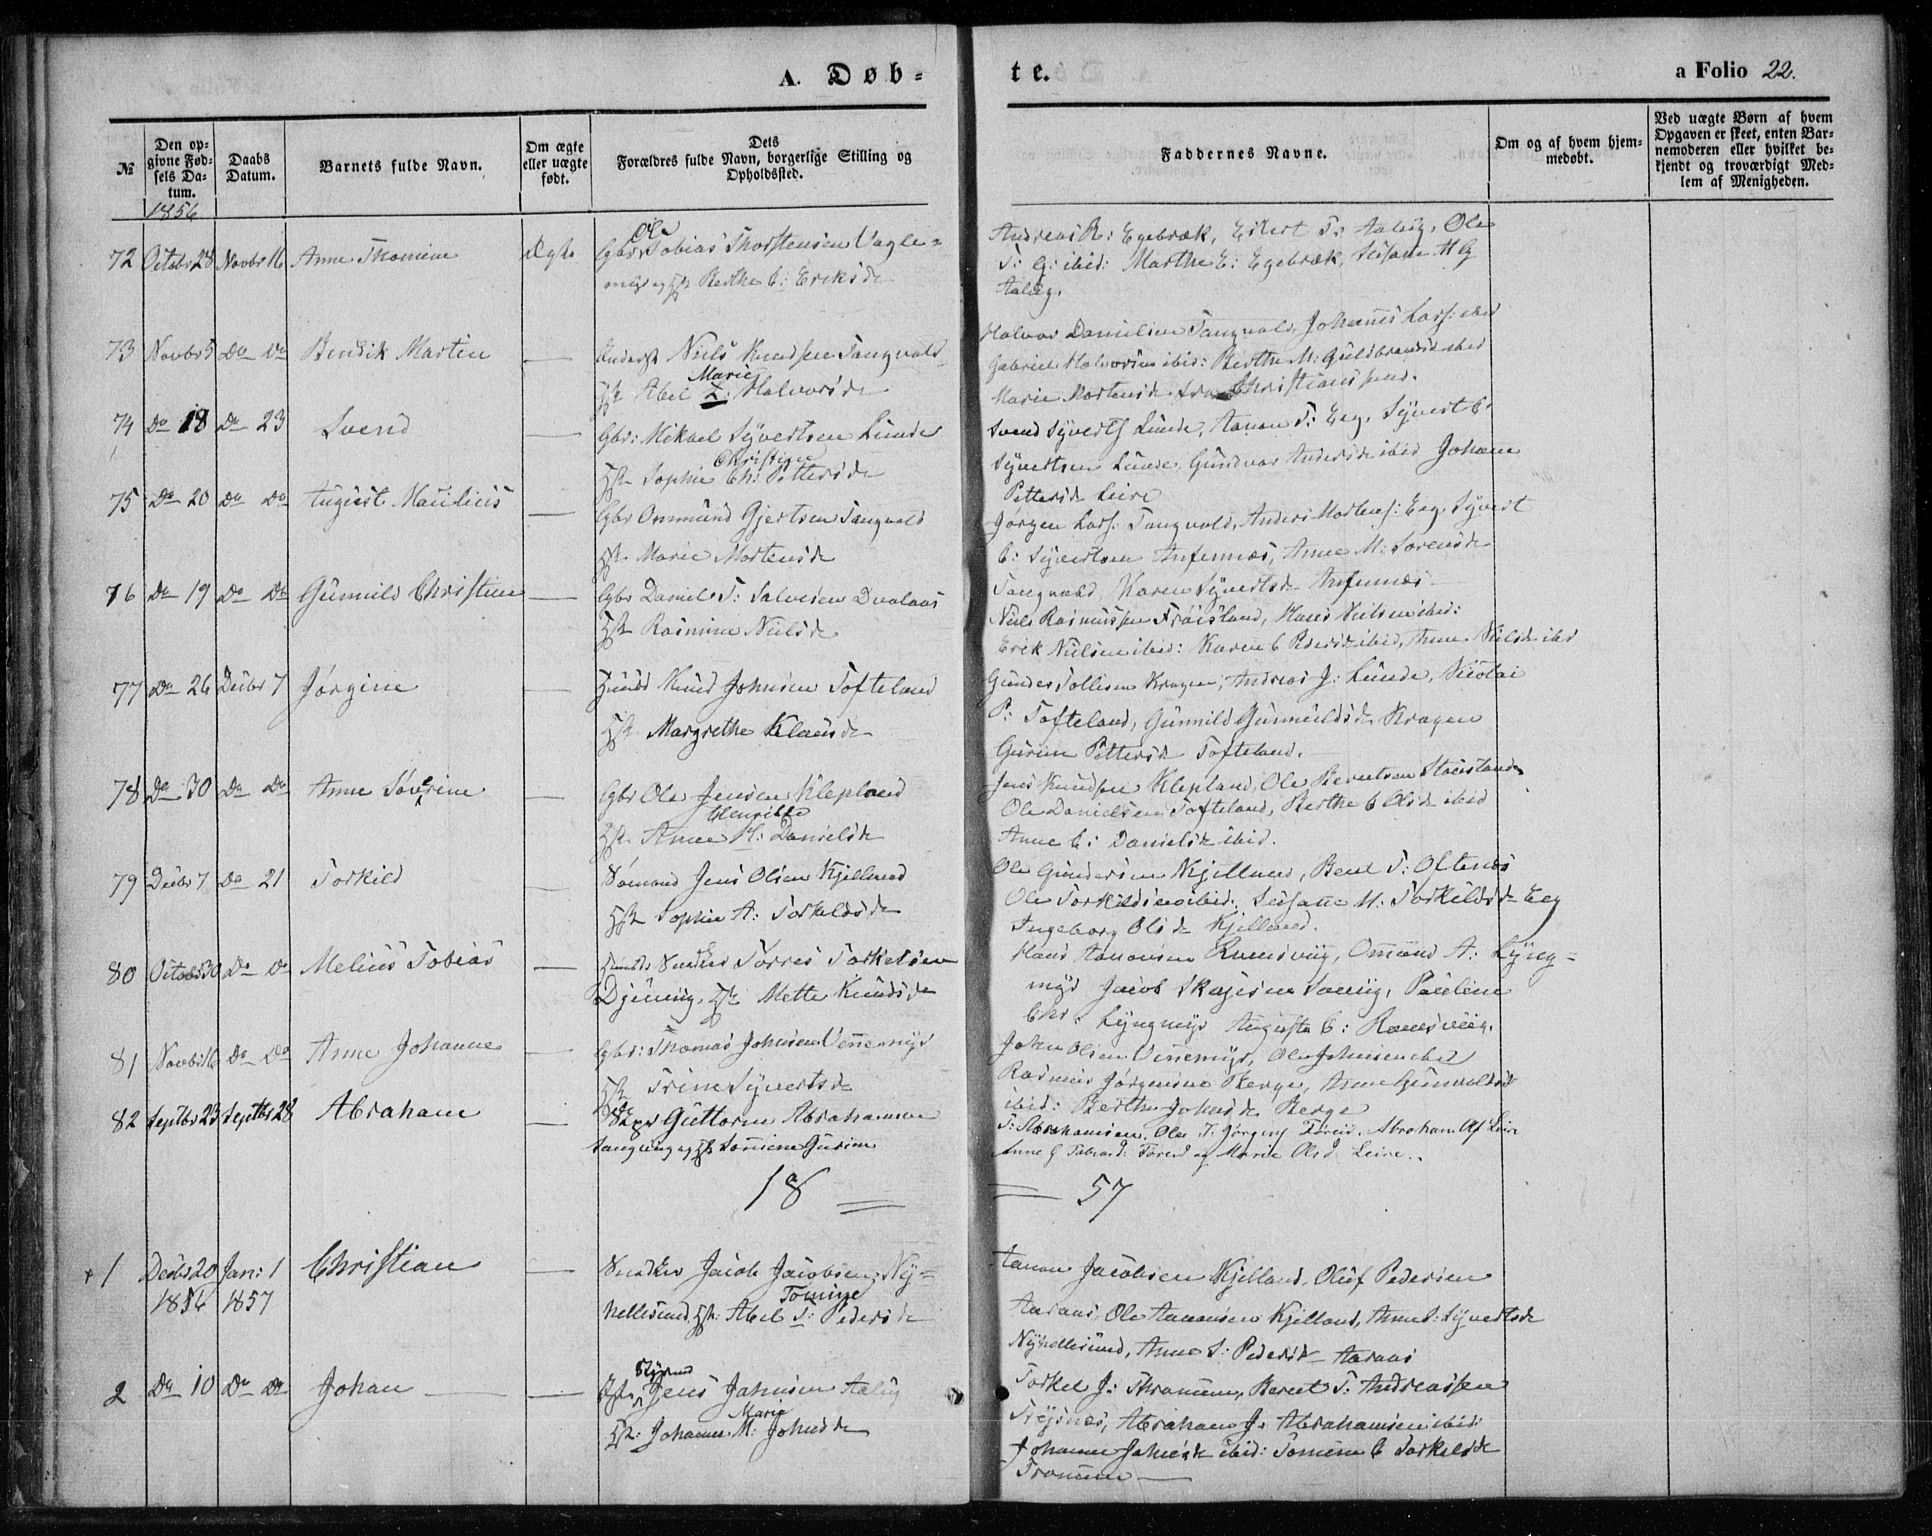 A. Døb-
te.
a Folio 22.
№
Den op-
givne Fød-
sels Da-
tum.
Daabs
Datum.
Barnets fulde Navn.
Om ægte
eller uægte
født.
Dets
Forældres fulde Navn, borgerlige Stilling og
Opholdssted.
Faddernes Navne.
Om og af hvem hjem-
medøbt.
Ved uægte Børn af hvem
Opgaven er skeet, enten Bar-
nemoderen eller hvilket be-
kjendt og troværdigt Med-
lem af Menigheden.
1856
72 Octobr 28 Novbr 16 Anne Thomine Ægte Gbr Ole Tobias Thorstensen Vagle-
myr og Hst Berthe C: Eriksd
Andreas R: Egebræk, Eilert T: Aabÿg, Ole
T: G: ibid: Marthe E: Egebræk, Susane M G
Aabÿg.
73 Novbr 5 Do Do Bendik Martin — Niels Knudsen Tangvald
Hst Abel Marie L: Halvorsd
Halvor Danielsen Tangvald, Johannes Lars: ibid
Gabriel Halvorsen ibid: Berthe M: Guldbrandsd ibid
Marie Mortensd fra Christianssand.
74 Do 18 Do 23 Svend — Gbr: Mikael Syvertsen Lunde
Hst Sophie Christine Ch: Pettersd
Svend Syverts Lunde, Aanon T: Eeg, Syvert C.
Syvertsen Lunde, Gundvor Andersd ibid Johane
Pettersd Leire
75 Do 20 Do Do August Maulius — Gbr Ommund Gjertsen Tangvald
Hst Marie Mortensd
Jørgen Lars: Tangvald, Anders Mortens: Eeg, Syvert
C: Syvertsen Anfennæs, Anne M: Sorensd
Tangvald, Karen Syvertsd Anfennæs
76 Do 19 Do Do Gunnild Christine — Gbr Daniel T: Salvesen Dvalaas
Hst Rasmine Nielsd
Niels Rasmussen Frøisland, Hans Nielsen ibid:
Erik Nielsen ibid: Karen C Pedersd ibid, Anne Nielsd ibid
77 Do 26 Decbr 7 Jørgine — Knud Johnsen Tofteland
Hst Margrethe Klausd
Gunder Tollisen Kragen, Andreas J: Lunde, Nicolai
P: Tofteland, Gunnild Gunnuldsd Kragen
Gurine Pettersd Tofteland.
78 Do 30 Do Do Anne Severine — Gbr Ole Jensen Klepland
Hst Anne Henrikke H: Danielsd
Jens Knudsen Klepland, Ole Berentsen Stausland
Ole Danielsen Tofteland, Berthe C Olsd ibid
Anne C: Danielsd ibid.
79 Decbr 7 Do 21 Torkild — Sømand Jens Olsen Kjelland
Hst Sophie A: Torkildsd
Ole Gundersen Kjelland, Bent T: Oftenæs
Ole Torkildsen ibid: Susane M: Torkildsd Eeg
Ingeborg Olsd Kjelland.
80 Octobr 30 Do Do Melius Tobias — Torres Torkelsen
Hst Mette Knudsd
Hans Aanonsen Ramsvig, Omund A: Lyng-
myr Jacob Skajesen Pauline
Chr: Lyngmyr Augusta C: Ramsviig.
81 Novbr 16 Do Do Anne Johanne — Gbr: Thomas Johnsen Vennemyr
Hst Trine Syvertsd
John Olsen Vennemyr, Ole Johnsen ibid
Rasmus Jørgensen Berge, Anne Gunvaldsd
ibid: Berthe Johnsd Berge
82 Septbr 23 Septbr 28 Abraham — Guttorm Abrahamsen
Langviig og Hst Tomine Gurine
T: Abrahamsen, Ole J: Jørgens Føreid. Abraham Ols Leire
Anne G Tobiasd: Føreid og Marie Olsd Leire.
18 =
= 57
+ 1 Decbr 20 Jan: 1 Christian — Snedker Jacob Jacobsen Ny-
1856 1857
hellesund, Hst: Abel Tomine T: Pedersd
Aanon Jacobsen Kjelland, Oluf Pedersen
Aaraas, Ole Aanonsen Kjelland, Anne S: Syvertsd
Nyhellesund, Anne S: Pedersd Aaraas
2 Do 10 Do Do Johan — — Styrmd Jens Jahnsen Aabÿg
Hst: Johanne Marie M: Johnsd
Torkel J: Thronmem, Berent T: Andreassen
Trysnæs, Abraham J: Abrahamsen ibid:
Johanne Jahnsd ibid: Tomine C Torkelsd
Tronmem